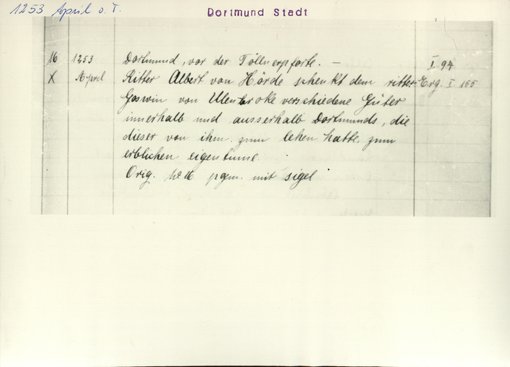 1253 April o. T.
Dortmund Stadt
16 1253 Dortmund, vor der Töllnerpforte. — I. 94
X April Ritter Albert von Hörde schenkt dem ritter Erg. I 165
Goswin von Ulenbroke verschiedene Güter
innerhalb und ausserhalb Dortmunds, die
dieser von ihm zum lehen hatte zum
erblichen eigentume
Orig. pgm. mit sigel